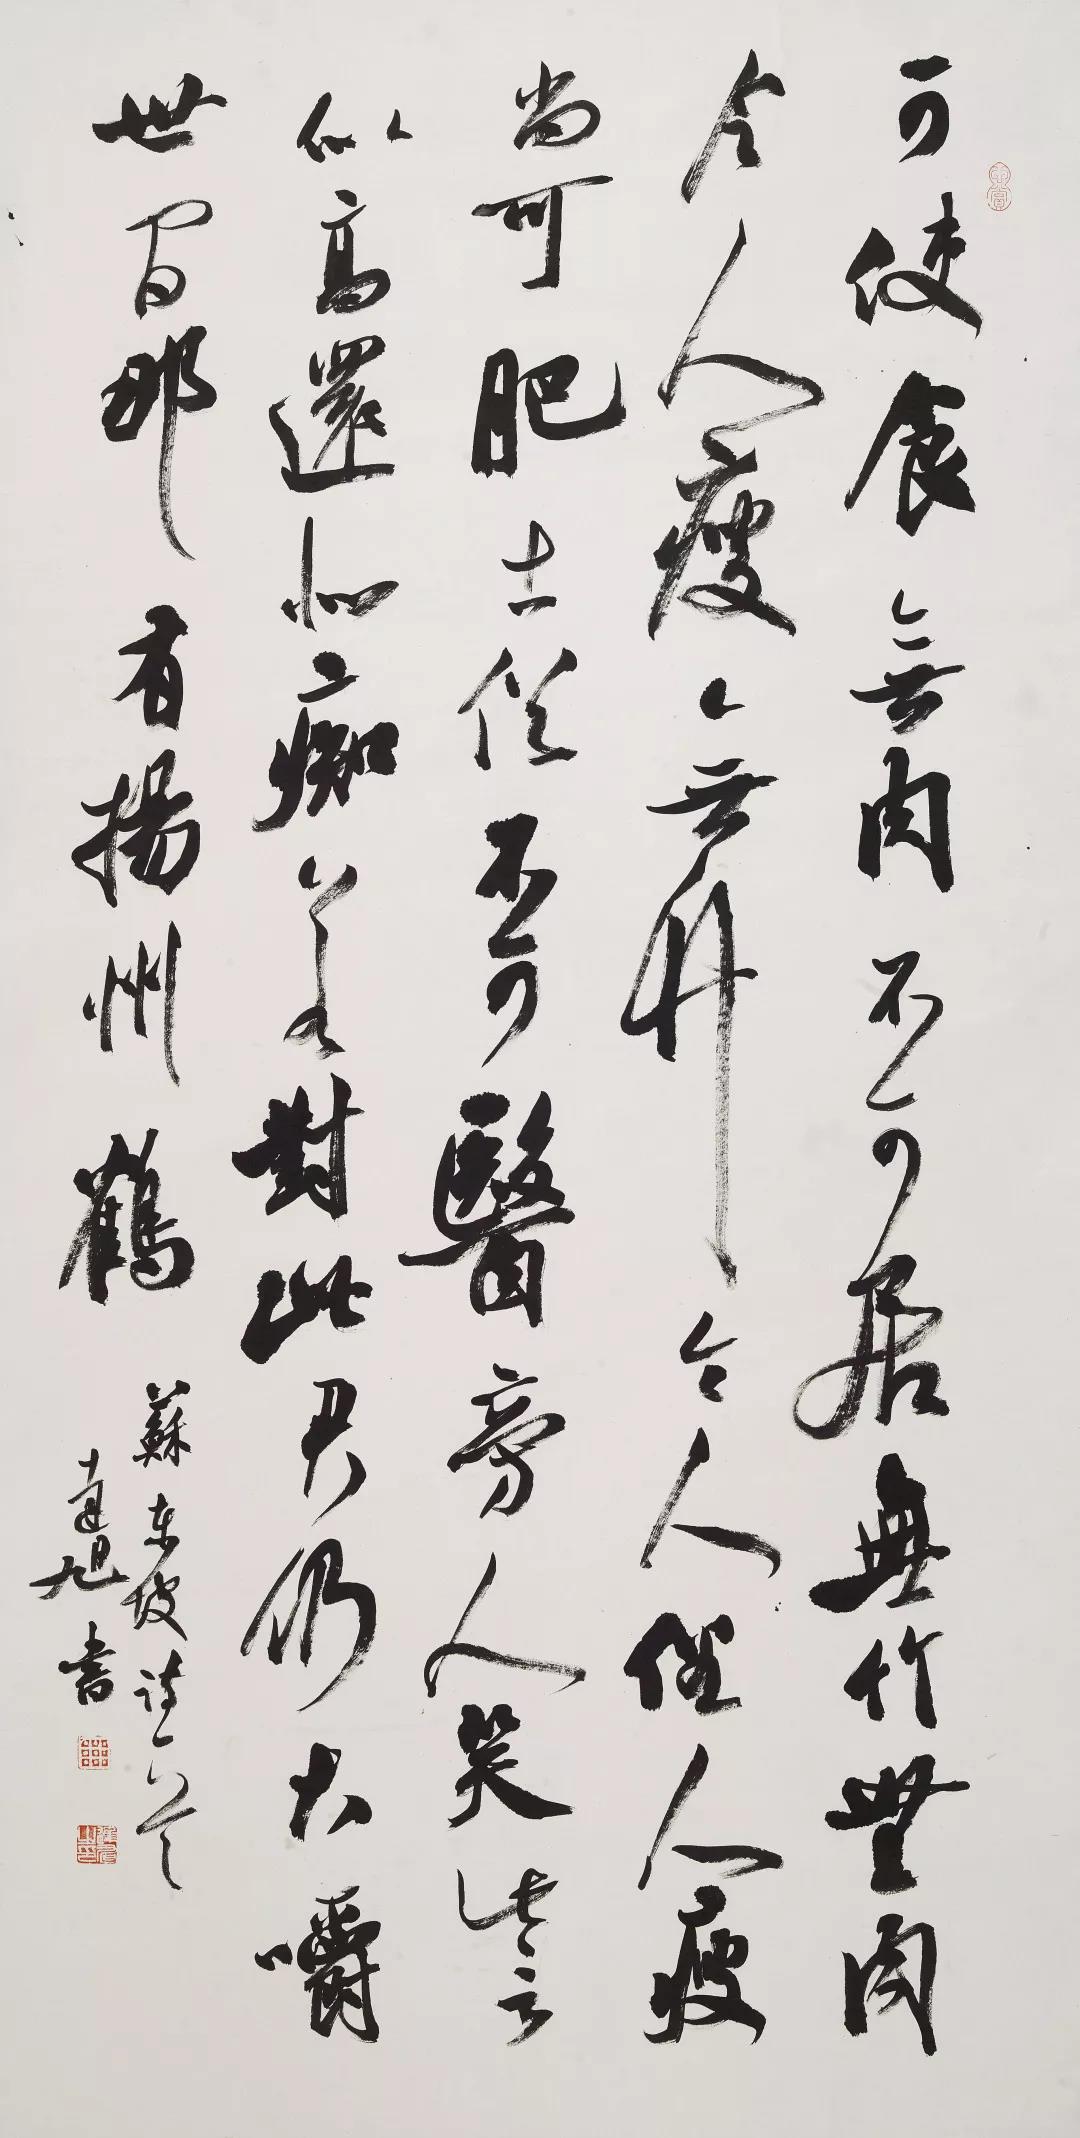 可使食無肉不可居無竹無肉
令人瘦無竹令人俗人瘦
尚可肥士俗不可醫旁人笑此言
似高還似痴若對此君仍大嚼
世間那有揚州鶴
蘇東坡詩一首
旭書